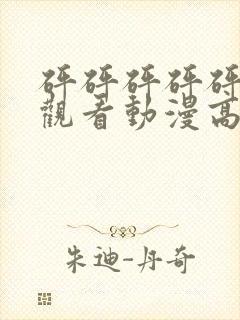 砰砰砰砰砰
觀看動漫高
朱迪-丹奇